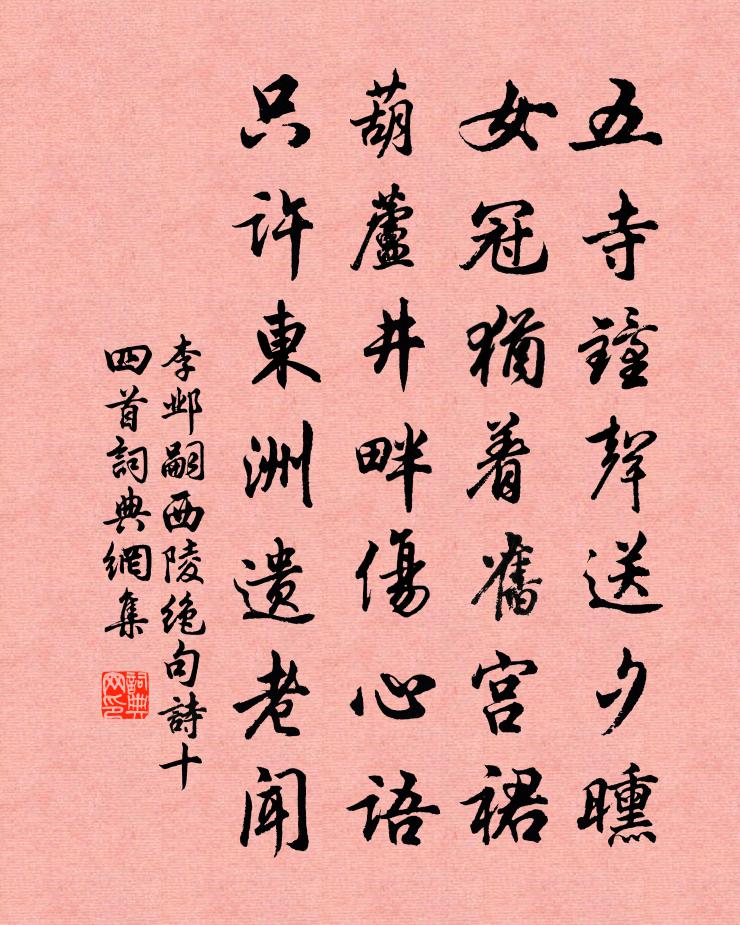 五寺鐘聲送夕曛
女冠猶着舊宮裙
葫蘆井畔傷心語
只許東洲遗老聞
李邺嗣西陵絶句詩十
四首詞典網集
詞典
网印